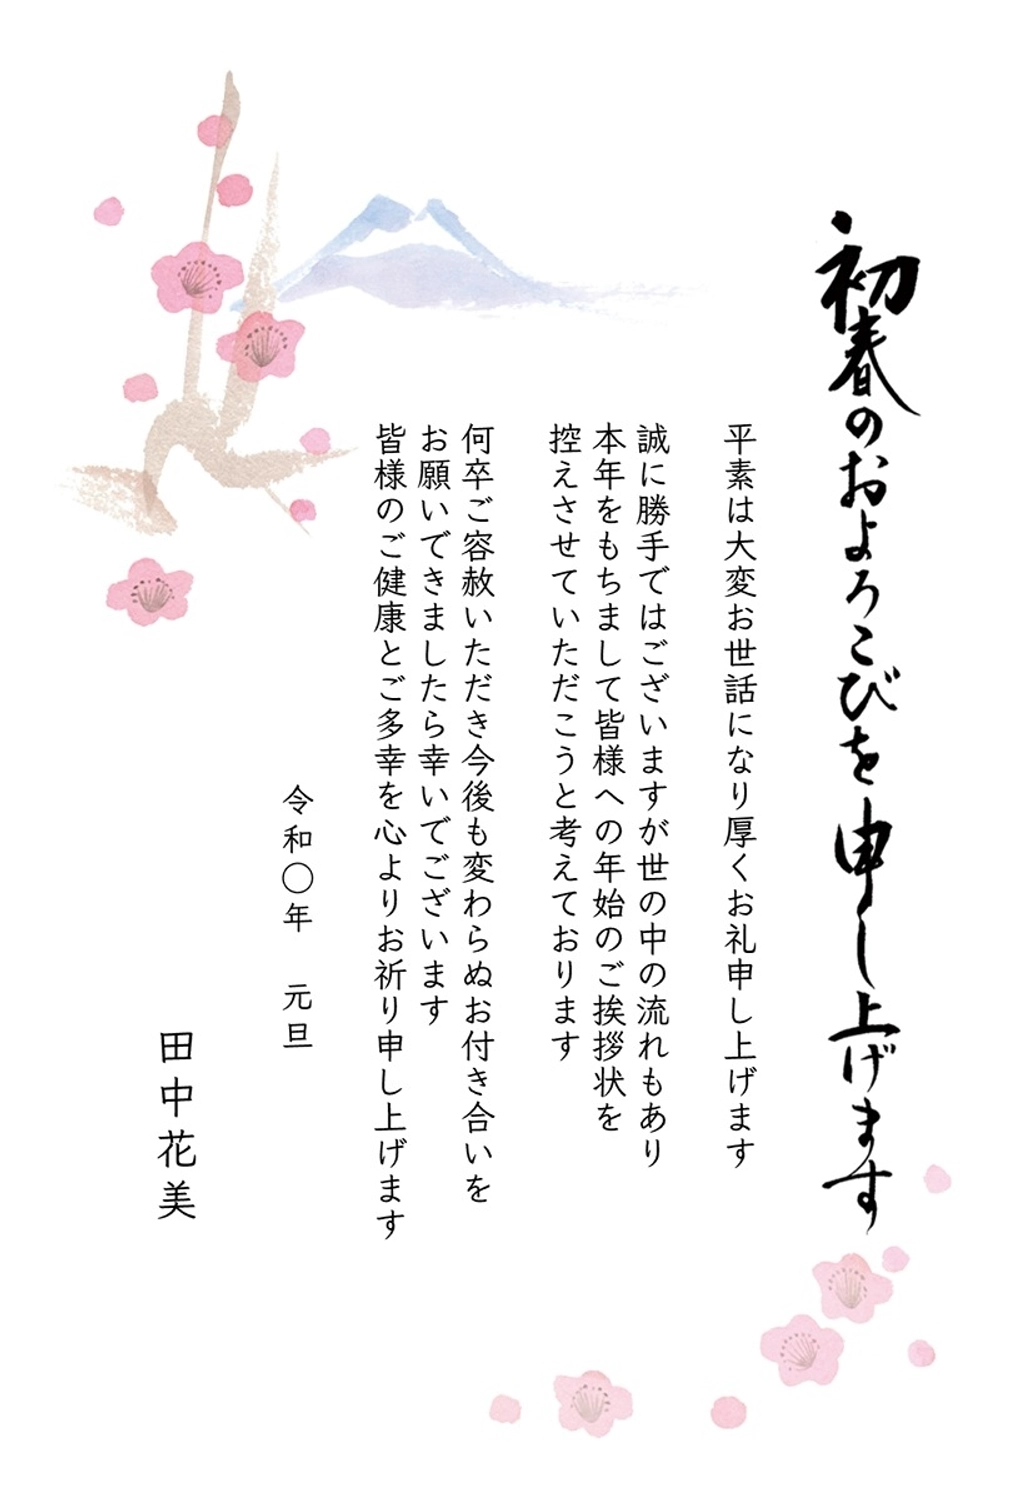 初春のおよろこびを申し上げます
平素は大変お世話になり厚くお礼申し上げます
誠に勝手ではございますが世の中の流れもあり
本年をもちまして皆様への年始のご挨拶状を
控えさせていただこうと考えております
何卒ご容赦いただき今後も変わらぬお付き合いを
お願いできましたら幸いでございます
皆様のご健康とご多幸を心よりお祈り申し上げます
令和〇年　元旦
田中花美